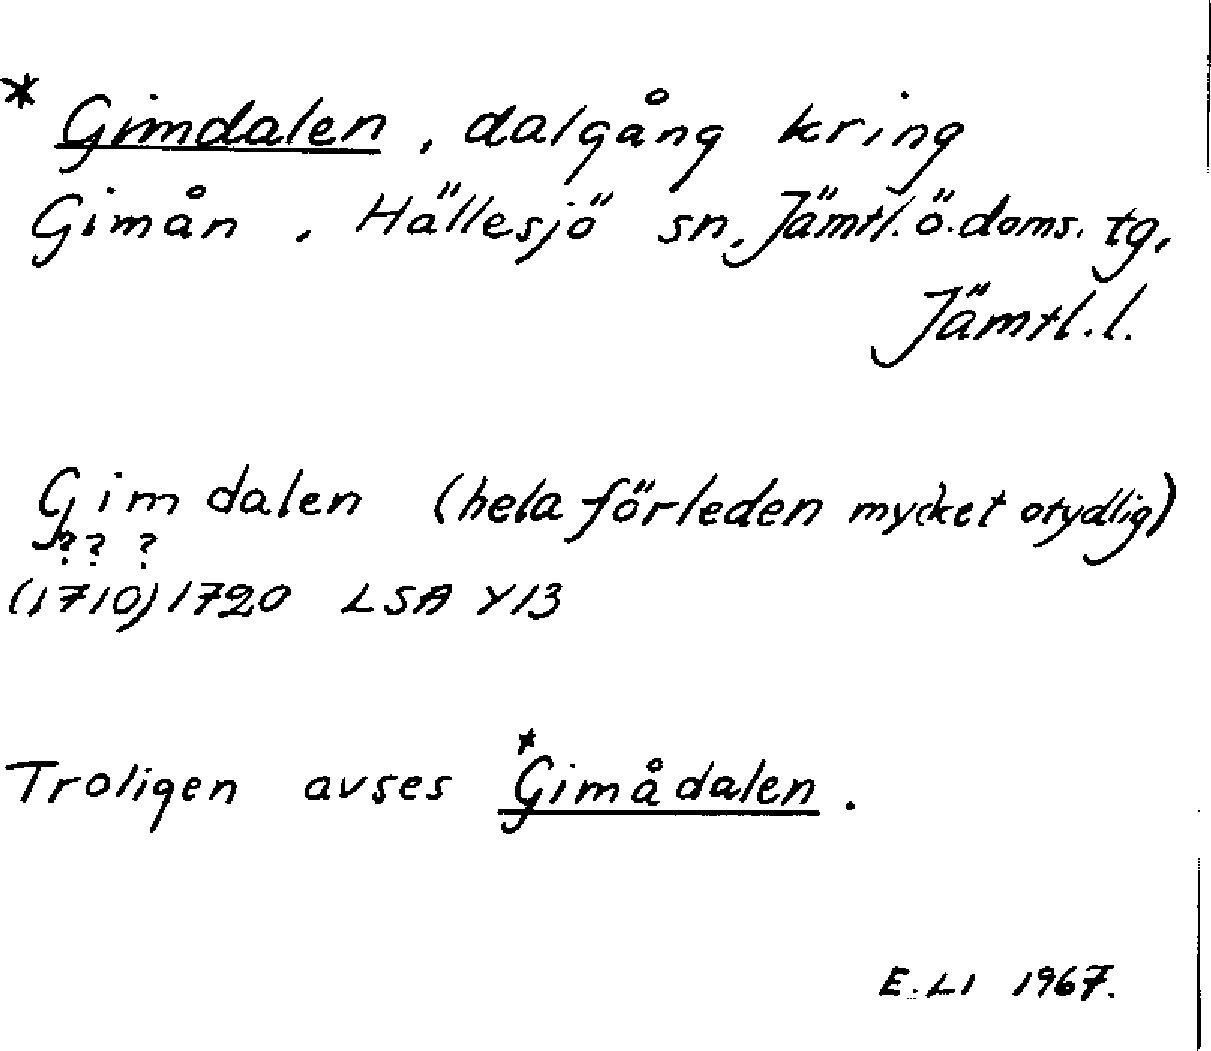 * Gimdalen, dalgång kring
Gimån, Hällesjö sn, Jämtl. ö. doms. tg,
Jämtl. l.
Gimdalen (hela förleden mycket otydlig)
? ? ?
(1710) 1720 LSA Y13
Troligen avses *Gimådalen.
E. LI 1967.